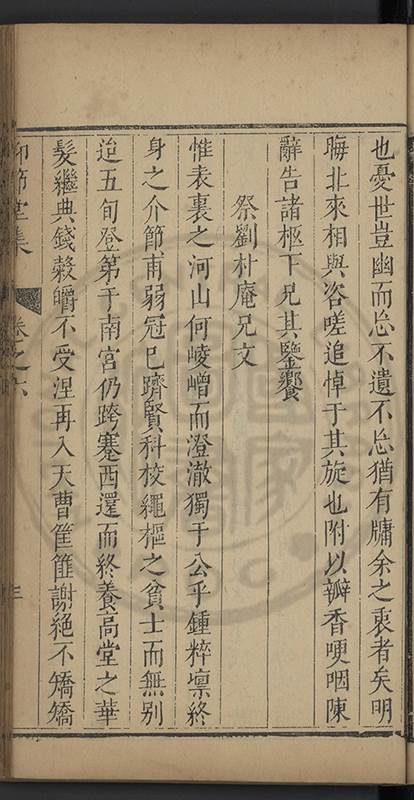 也憂世豈幽而忘不遺不忘猶有牖余之衷者矣明
晦北來相與咨嗟追悼于其旋也附以瓣香哽咽陳
辭告諸柩下兄其鑒饗
祭劉朴庵兄文
惟表裏之河山何崚嶒而澄澈獨于公乎鍾粹禀終
身之介節甫弱冠已躋賢科校繩樞之貧士而無別
迨五旬登第于南宮仍跨蹇西還而終養高堂之華
髮繼典錢榖皭不受涅再入天曹筐篚謝絕不矯矯
仰節堂集
卷之六